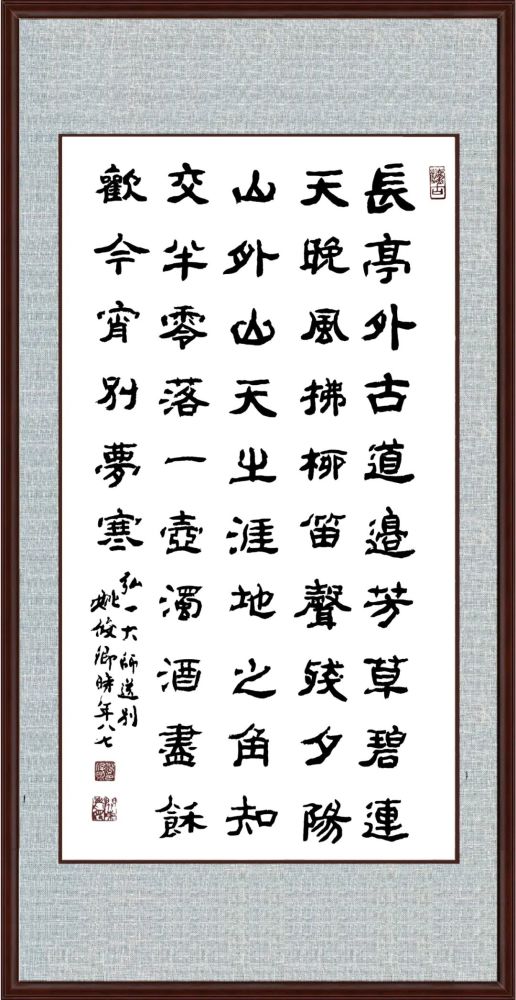 懷古
長亭外古道邊芳草碧連
天晚風拂柳笛聲殘夕陽
山外山天之涯地之角知
交半零落一壺濁酒盡餘
歡今宵別夢寒
弘一大師送別
姚俊卿時年八七